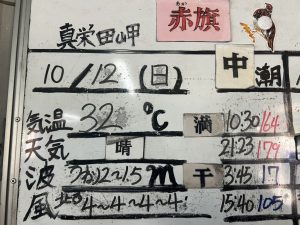 真栄田岬
赤旗
10/12(日)
中潮
気温 32℃ 満 10:30 164
天気 晴 21:23 179
波 1.2〜1.5m 干 3:45 17
風 北西 4〜4〜4〜4 15:40 105